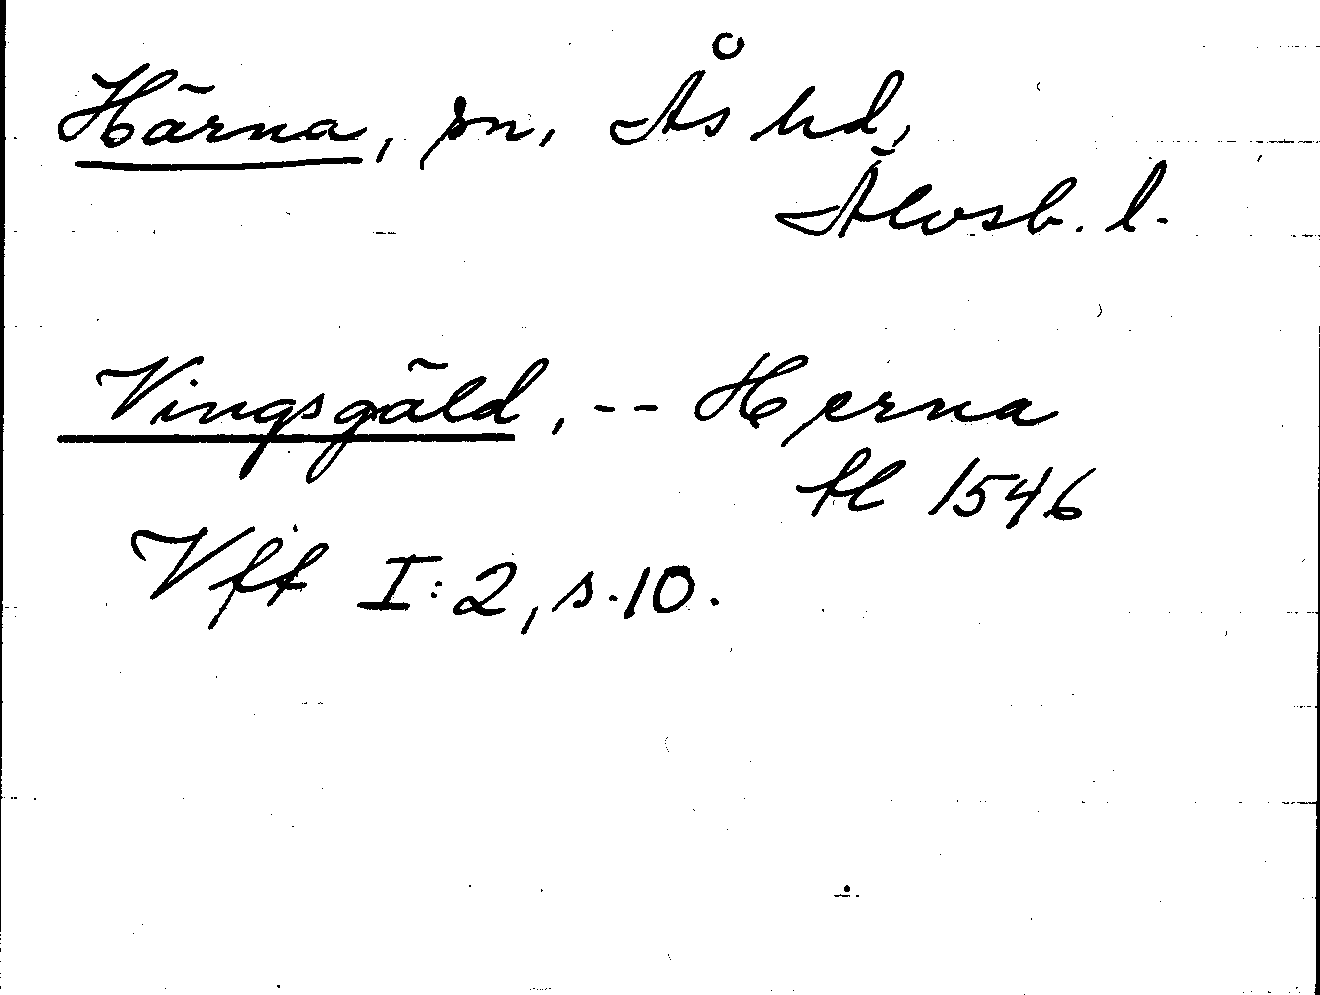 Härna, sn, Ås hd,
Älvsb. l.
Vingsgäld, -- Herna
fl 1546
Vff I:2, s.10.